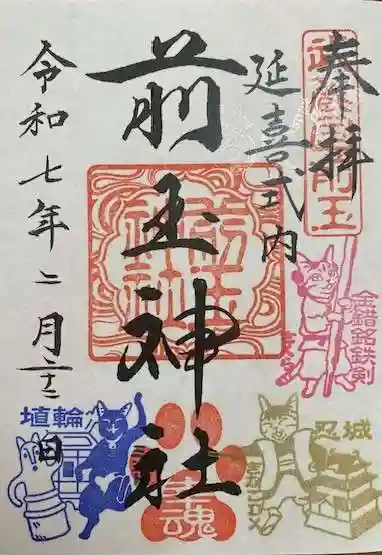 奉拝
延喜式内
前玉神社
令和七年二月二十二日
金錯銘鉄剣
忍城
埴輪